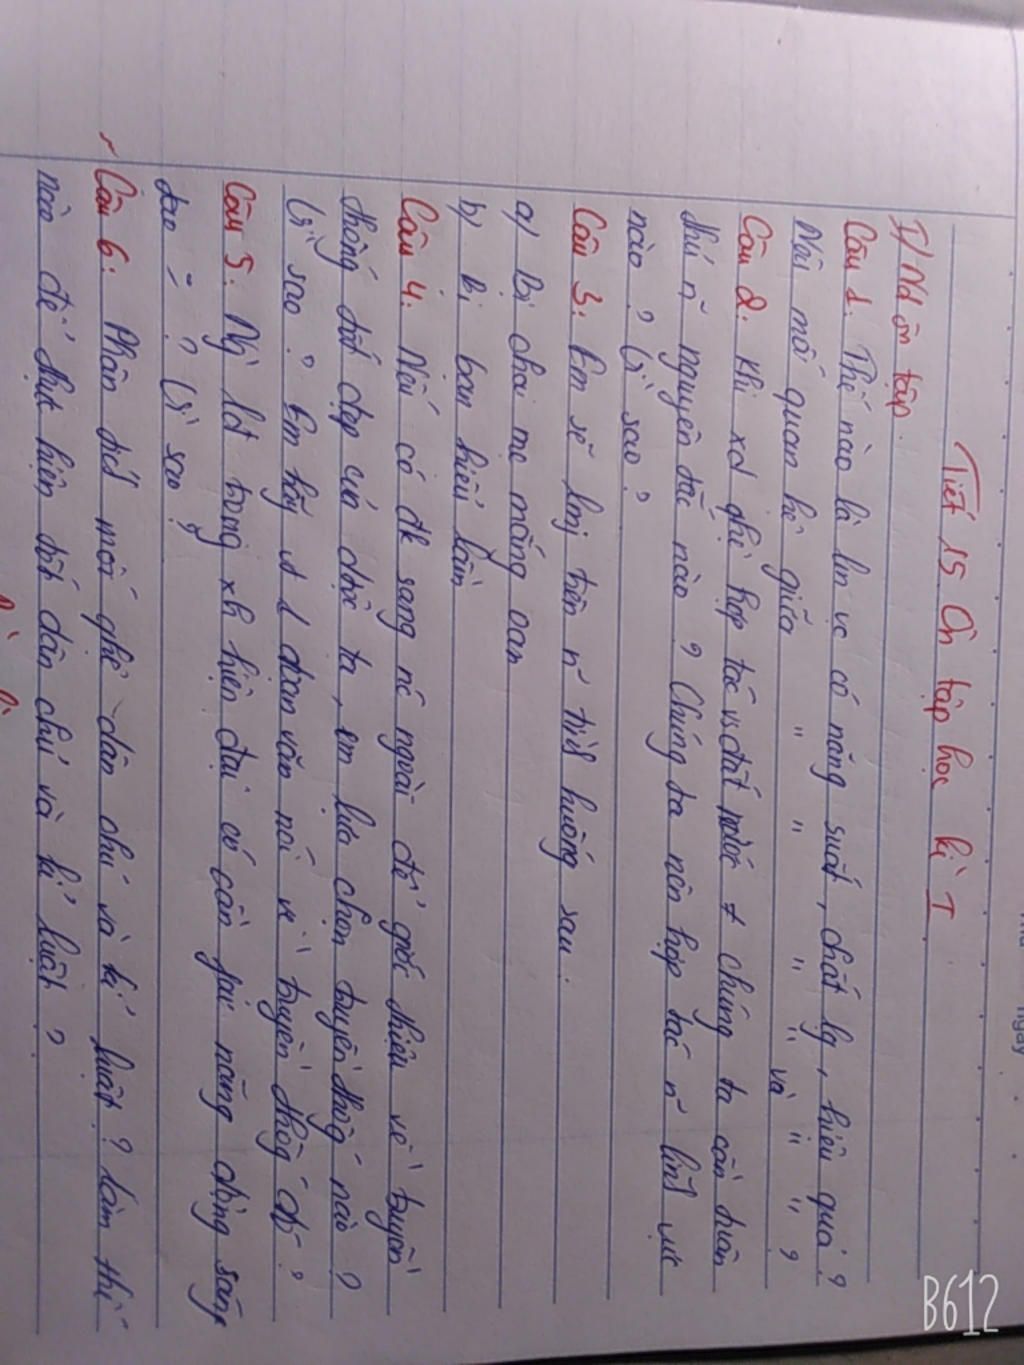 Tiết 15 Ôn tập học kì I
I/ Nd ôn tập
Câu 1: Thế nào là lm vc có năng suất, chất lg, hiệu quả?
Nêu mối quan hệ giữa " " " " và " " ?
Câu 2: Khi xd qhệ hợp tác vs đất nước ≠ chúng ta cần tuân
thủ n~ nguyên tắc nào? Chúng ta nên hợp tác n~ lĩnh vực
nào? Vì sao?
Câu 3: Em sẽ lmj trên n~ tình huống sau:
a) Bị cha mẹ mắng oan
b) Bị bạn hiểu lầm
Câu 4: Nếu có đk sang nc ngoài để giới thiệu về truyền
thống tốt đẹp của dtộc ta, em lựa chọn truyền thống nào?
Vì sao? Em hãy vt 1 đoạn văn nói về truyền thống đó?
Câu 5: Ng` lđ trong xh hiện đại có cần fải năng động sáng
tạo ? Vì sao?
Câu 6: Phân tích mối qhệ dân chủ và kỉ luật? Làm thế
nào để thực hiện tốt dân chủ và kỉ luật?
ngày
B612